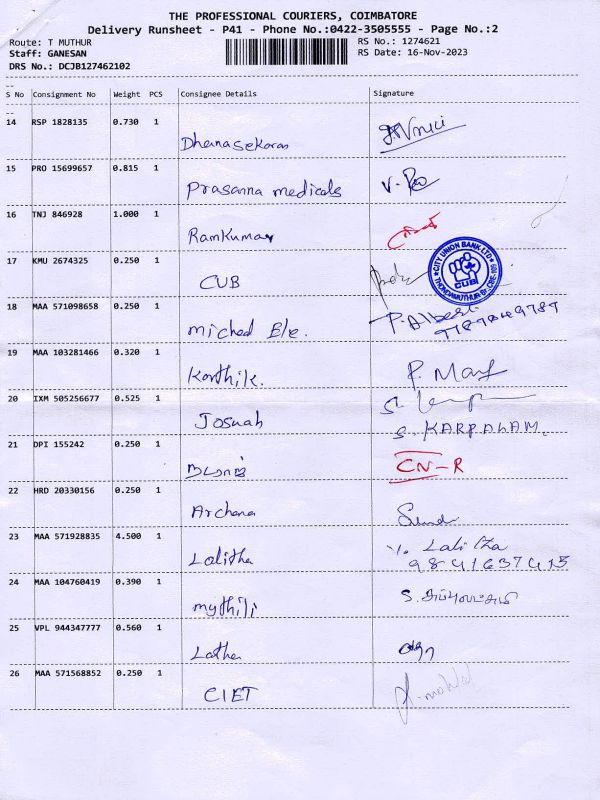 THE PROFESSIONAL COURIERS, COIMBATORE
Delivery Runsheet - P41 - Phone No.:0422-3505555 - Page No.:2
Route: T MUTHUR
RS No.: 1274621
Staff: GANESAN
RS Date: 16-Nov-2023
DRS No.: DCJB127462102
S No Consignment No Weight PCS Consignee Details Signature
14 RSP 1828135 0.730 1
Dhanasekaran
15 PRO 15699657 0.815 1
Prasanna medicals V.
16 TNJ 846928 1.000 1
Ramkumar
17 KMU 2674325 0.250 1
CUB
CITY UNION BANK LTD
CUB
18 MAA 571098658 0.250 1
P. Albert
Micheal
19 MAA 103281466 0.320 1
Karthik. P.
20 IXM 505256677 0.525 1
Josuah S. KARPAGAM.
21 DPI 155242 0.250 1
CN-R
22 HRD 20330156 0.250 1
Archana
23 MAA 571928835 4.500 1
Lalitha
Lalitha 9841637415
24 MAA 104760419 0.390 1
mythili S.
25 VPL 944347777 0.560 1
Latha
26 MAA 571568852 0.250 1
CIET